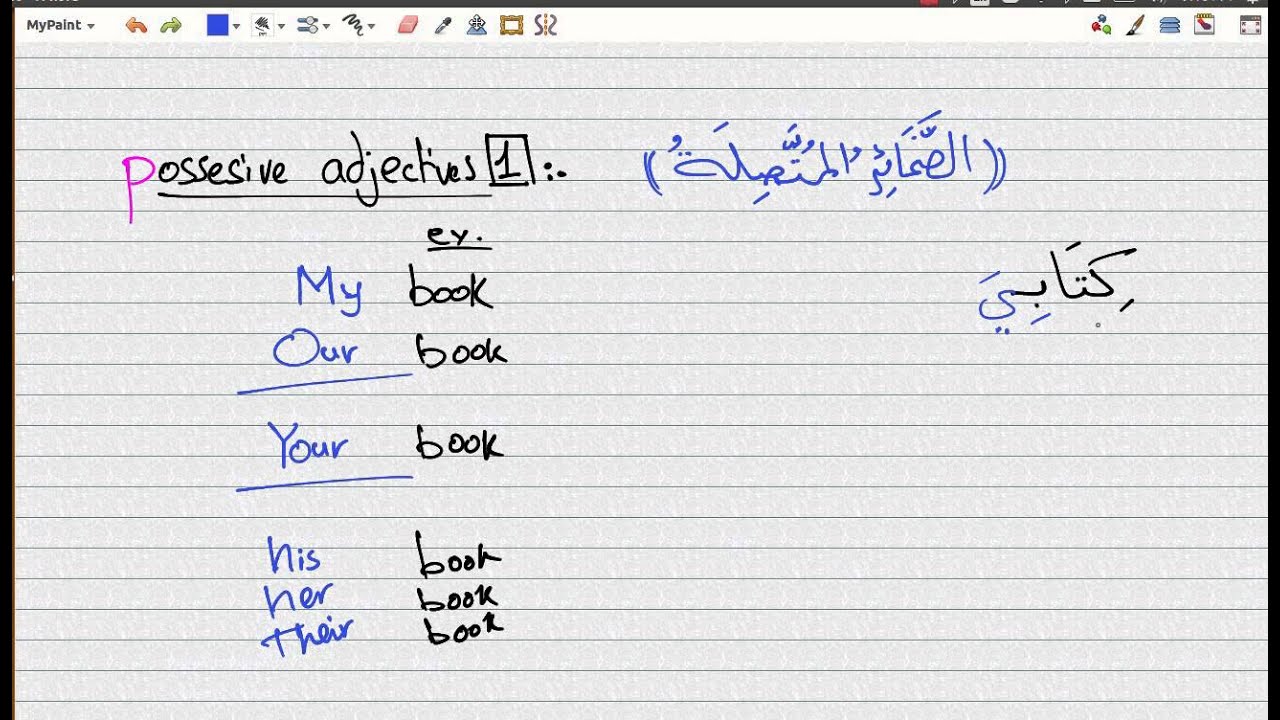 MyPaint
Possesive adjectives 1 :-
((الضَّمَائِرُ المُتَّصِلَةُ))
ex.
My book
كِتَابِيَ
Our book
Your book
his book
her book
their book